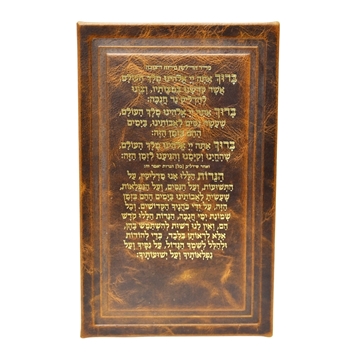 סדר הדלקת נרות חנוכה
בָּרוּךְ אַתָּה יְיָ אֱלֹהֵינוּ מֶלֶךְ הָעוֹלָם,
אֲשֶׁר קִדְּשָׁנוּ בְּמִצְוֹתָיו, וְצִוָּנוּ
לְהַדְלִיק נֵר חֲנֻכָּה:
בָּרוּךְ אַתָּה יְיָ אֱלֹהֵינוּ מֶלֶךְ הָעוֹלָם,
שֶׁעָשָׂה נִסִּים לַאֲבוֹתֵינוּ, בַּיָּמִים
הָהֵם בַּזְּמַן הַזֶּה:
בָּרוּךְ אַתָּה יְיָ אֱלֹהֵינוּ מֶלֶךְ הָעוֹלָם,
שֶׁהֶחֱיָנוּ וְקִיְּמָנוּ וְהִגִּיעָנוּ לַזְּמַן הַזֶּה:
הַנֵּרוֹת הַלָּלוּ אָנוּ מַדְלִיקִין, עַל
הַתְּשׁוּעוֹת, וְעַל הַנִּסִּים, וְעַל הַנִּפְלָאוֹת,
שֶׁעָשִׂיתָ לַאֲבוֹתֵינוּ בַּיָּמִים הָהֵם בַּזְּמַן
הַזֶּה, עַל יְדֵי כֹּהֲנֶיךָ הַקְּדוֹשִׁים. וְכָל
שְׁמוֹנַת יְמֵי חֲנֻכָּה, הַנֵּרוֹת הַלָּלוּ קֹדֶשׁ
הֵם, וְאֵין לָנוּ רְשׁוּת לְהִשְׁתַּמֵּשׁ בָּהֶן,
אֶלָּא לִרְאוֹתָן בִּלְבָד, כְּדֵי לְהוֹדוֹת
וּלְהַלֵּל לְשִׁמְךָ הַגָּדוֹל, עַל נִסֶּיךָ וְעַל
נִפְלְאוֹתֶיךָ וְעַל יְשׁוּעוֹתֶיךָ: